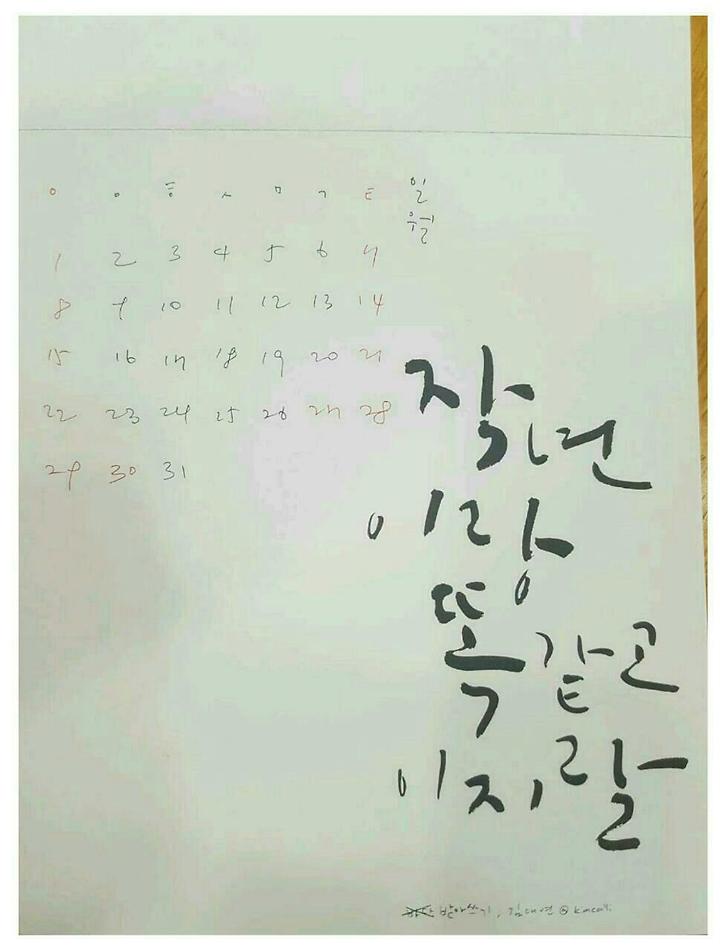 ㅇ ㅇ ㅎ ㅅ ㅁ ㄱ ㅌ
일
월
1 2 3 4 5 6 7
8 9 10 11 12 13 14
15 16 17 18 19 20 21
22 23 24 25 26 27 28
29 30 31
작년
이랑
똑같고
이지랄
받아쓰기, 김대연 @kmcalli